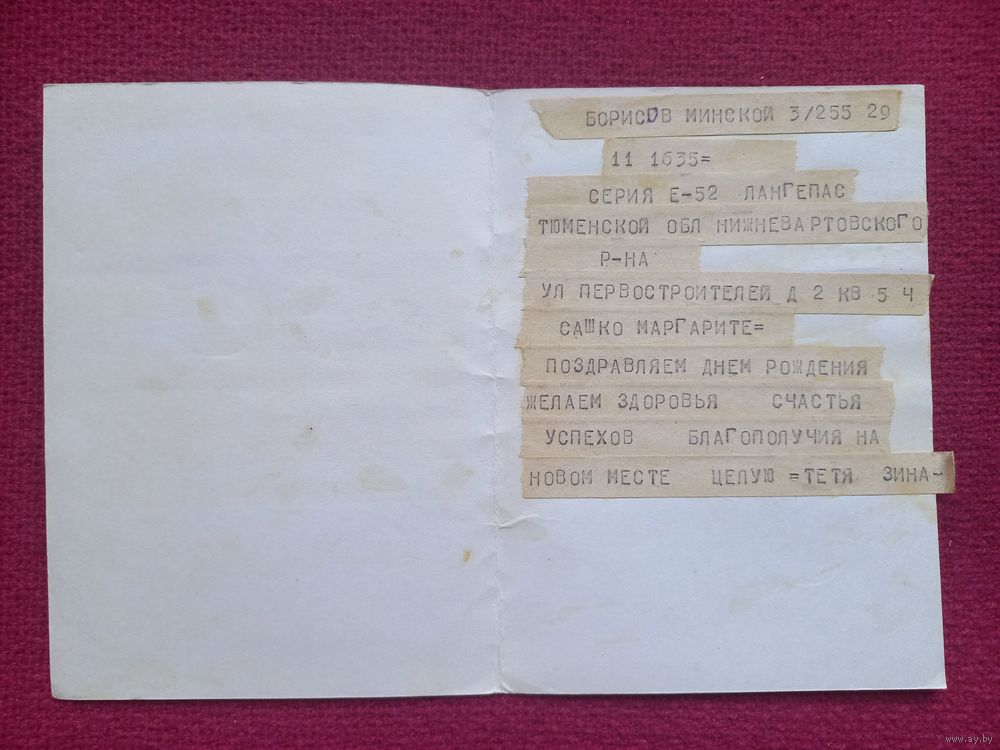 БОРИСОВ МИНСКОЙ 3/255 29
11 1635=
СЕРИЯ Е-52 ЛАНГЕПАС
ТЮМЕНСКОЙ ОБЛ НИЖНЕВАРТОВСКОГО
Р-НА
УЛ ПЕРВОСТРОИТЕЛЕЙ Д 2 КВ 5 Ч
САШКО МАРГАРИТЕ=
ПОЗДРАВЛЯЕМ ДНЕМ РОЖДЕНИЯ
ЖЕЛАЕМ ЗДОРОВЬЯ СЧАСТЬЯ
УСПЕХОВ БЛАГОПОЛУЧИЯ НА
НОВОМ МЕСТЕ ЦЕЛУЮ =ТЕТЯ ЗИНА-
www.ay.by